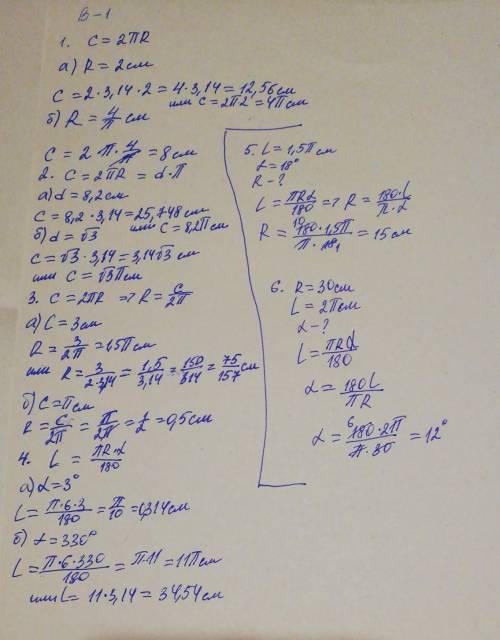 В-1
1. C = 2πR
а) R = 2см
C = 2 · 3,14 · 2 = 4 · 3,14 = 12,56 см
или C = 2π2 = 4π см
б) R = 4/π см
C = 2 · π · 4/π = 8 см
2. C = 2πR = d · π
а) d = 8,2см
C = 8,2 · 3,14 = 25,748 см
или C = 8,2π см
б) d = √3
C = √3 · 3,14 = 3,14√3 см
или C = √3π см
3. C = 2πR => R = C/2π
а) C = 3см
R = 3/2π = 1,5π см
или R = 3/2·3,14 = 1,5/3,14 = 150/314 = 75/157 см
б) C = π см
R = C/2π = π/2π = 1/2 = 0,5 см
4. L = πR·α/180
а) α = 3°
L = π·6·3/180 = π/10 = 0,314 см
б) α = 330°
L = π·6·330/180 = π·11 = 11π см
или L = 11 · 3,14 = 34,54 см
5. L = 1,5π см
α = 18°
R - ?
L = πRα/180 => R = 180·L/π·α
R = 10 180·1,5π/π·18 1 = 15 см
6. R = 30см
L = 2π см
α - ?
L = πRα/180
α = 180L/πR
α = 6 180·2π/π·30 = 12°